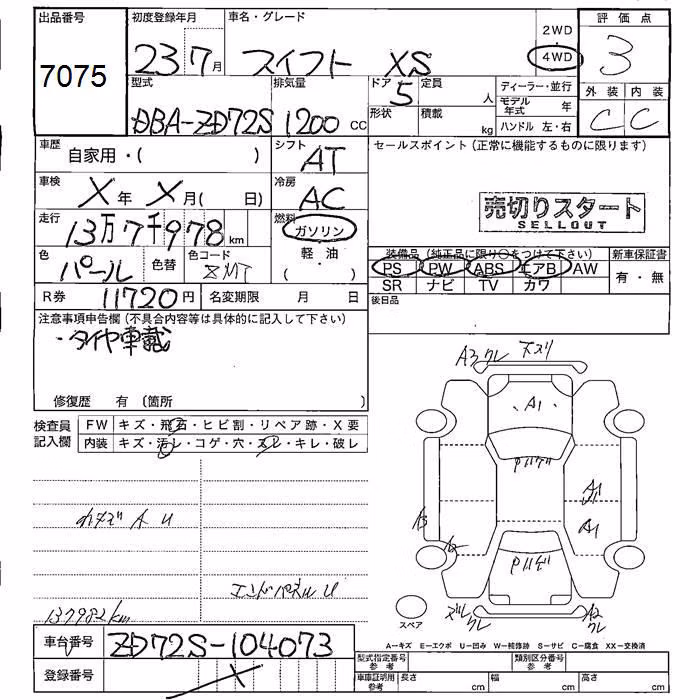 出品番号 初度登録年月 車名・グレード 2WD 評価点
7075 23 7月 スイフト XS 4WD 3
型式 排気量 ドア 定員 ディーラー・並行 外装 内装
DBA-ZD72S 1200 CC 5 人 モデル年式 年 C C
形状 積載 kg ハンドル 左・右
車歴 自家用・( ) シフト AT セールスポイント (正常に機能するものに限ります)
車検 X年 X月( 日) 冷房 AC
売切りスタート
SELLOUT
走行 13万7千978km 燃料 ガソリン
軽・油
( )
色 パール 色替 色コード ZMT
装備品 (純正品に限り○をつけて下さい) 新車保証書
PS PW ABS エアB AW 有・無
SR ナビ TV カワ
R券 11720円 名変期限 月 日 後日品
注意事項申告欄 (不具合内容等は具体的に記入して下さい)
・タイヤ車載
修復歴 有 (箇所 )
A3 クレ 下スリ
A1
検査員記入欄 FW キズ・飛石・ヒビ割・リペア跡・X要
内装 キズ・汚レ・コゲ・穴・スレ・キレ・破レ
A1
A1
A U
エンドパネル U
137982km
スペア
A2
クレ
A-キズ E-エクボ U-凹み W-補修跡 S-サビ C-腐食 XX-交換済
車台番号 ZD72S-104073
型式指定番号 参考 類別区分番号 参考
登録番号 X
車庫証明用 参考 長さ cm 幅 cm 高さ cm